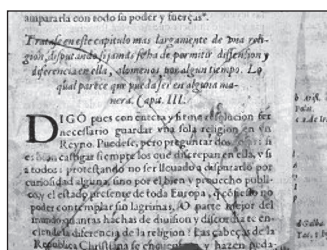 ampararla con todo su poder y fuerças".
Tratase en este capitulo mas largamente de vna reli-
gion, disputando si jamas se ha de permitir dissension y
diferencia en ella, alomenos por algun tiempo. Lo
qual parece que pueda ser en alguna ma-
nera. Capit. III.
DIGO pues con entera y firme resolucion ser
necessario guardar vna sola religion en vn
Reyno. Puedese, pero preguntar dos
es: bien castigar siempre los que discrepan en ella, y si
a todos: protestando no ser lleuado a disputarlo por
curiosidad alguna, sino por el bien y prouecho publi-
co, y el estado presente de toda Europa, q
poder contemplar sin lagrimas. O parte mejor del
mundo quantas hachas de diuision y discordia te en-
ciende la diferencia de la religion! Las cabeças de la
Republica Christiana se y hazen peda-